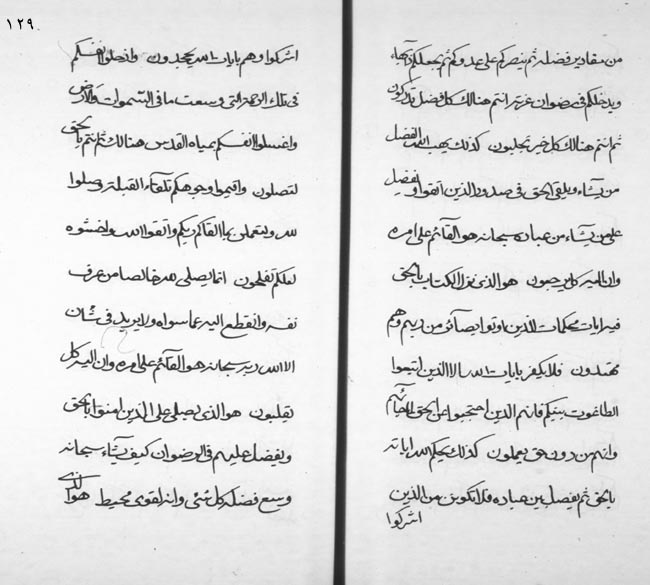 من مقادير فضله ثم ينصركم على عدوكم ثم يجعلكم
ويدخلكم في رضوان عز انتم هنالك كل فضل تدركون
ثم انتم هنالك كل خير تجلبون كذلك يهب الله الفضل
من يشاء ويلقي الحق في صدور الذين اتقوا ويفضل
على من يشاء من عباده سبحانه هو القائم على امره
وان اليه كل يرجعون هو الذي نزل الكتاب بالحق
فيه ايات محكمات للذين اوتوا بصائر من ربهم وهم
مهتدون فلا يكفر بايات الله الا الذين اتبعوا
الطاغوت بينكم فانهم الذين احتجبوا عن الحق
وانهم من دون حق يعملون كذلك يحكم الله اياته
بالحق ثم يفصل بين عباده فلا تكونن من الذين
اشركوا
١٢٩
اشركوا وهم بايات الله يجحدون وادخلوا انفسكم
في تلك الرحمة التي وسعت ما في السموات والارض
واغسلوا انفسكم بمياه القدس هنالك ثم انتم بالحق
لتصلون واقيموا وجوهكم تلقاء القبلة وصلوا
لله ولتعملن بما القاكم ربكم واتقوا الله واخشوه
لعلكم تفلحون انما يصلي لله خالصا من عرف
نفسه وانقطع اليه عما سواه ولا يريد في شأن
الا الله ربه سبحانه هو القائم على امره وان اليه كل
يقلبون هو الذي يصلي على الذين امنوا بالحق
ويفضل عليهم في الرضوان كيف يشاء سبحانه
وسع فضله كل شئ وانه لقوي محيط هو الذي